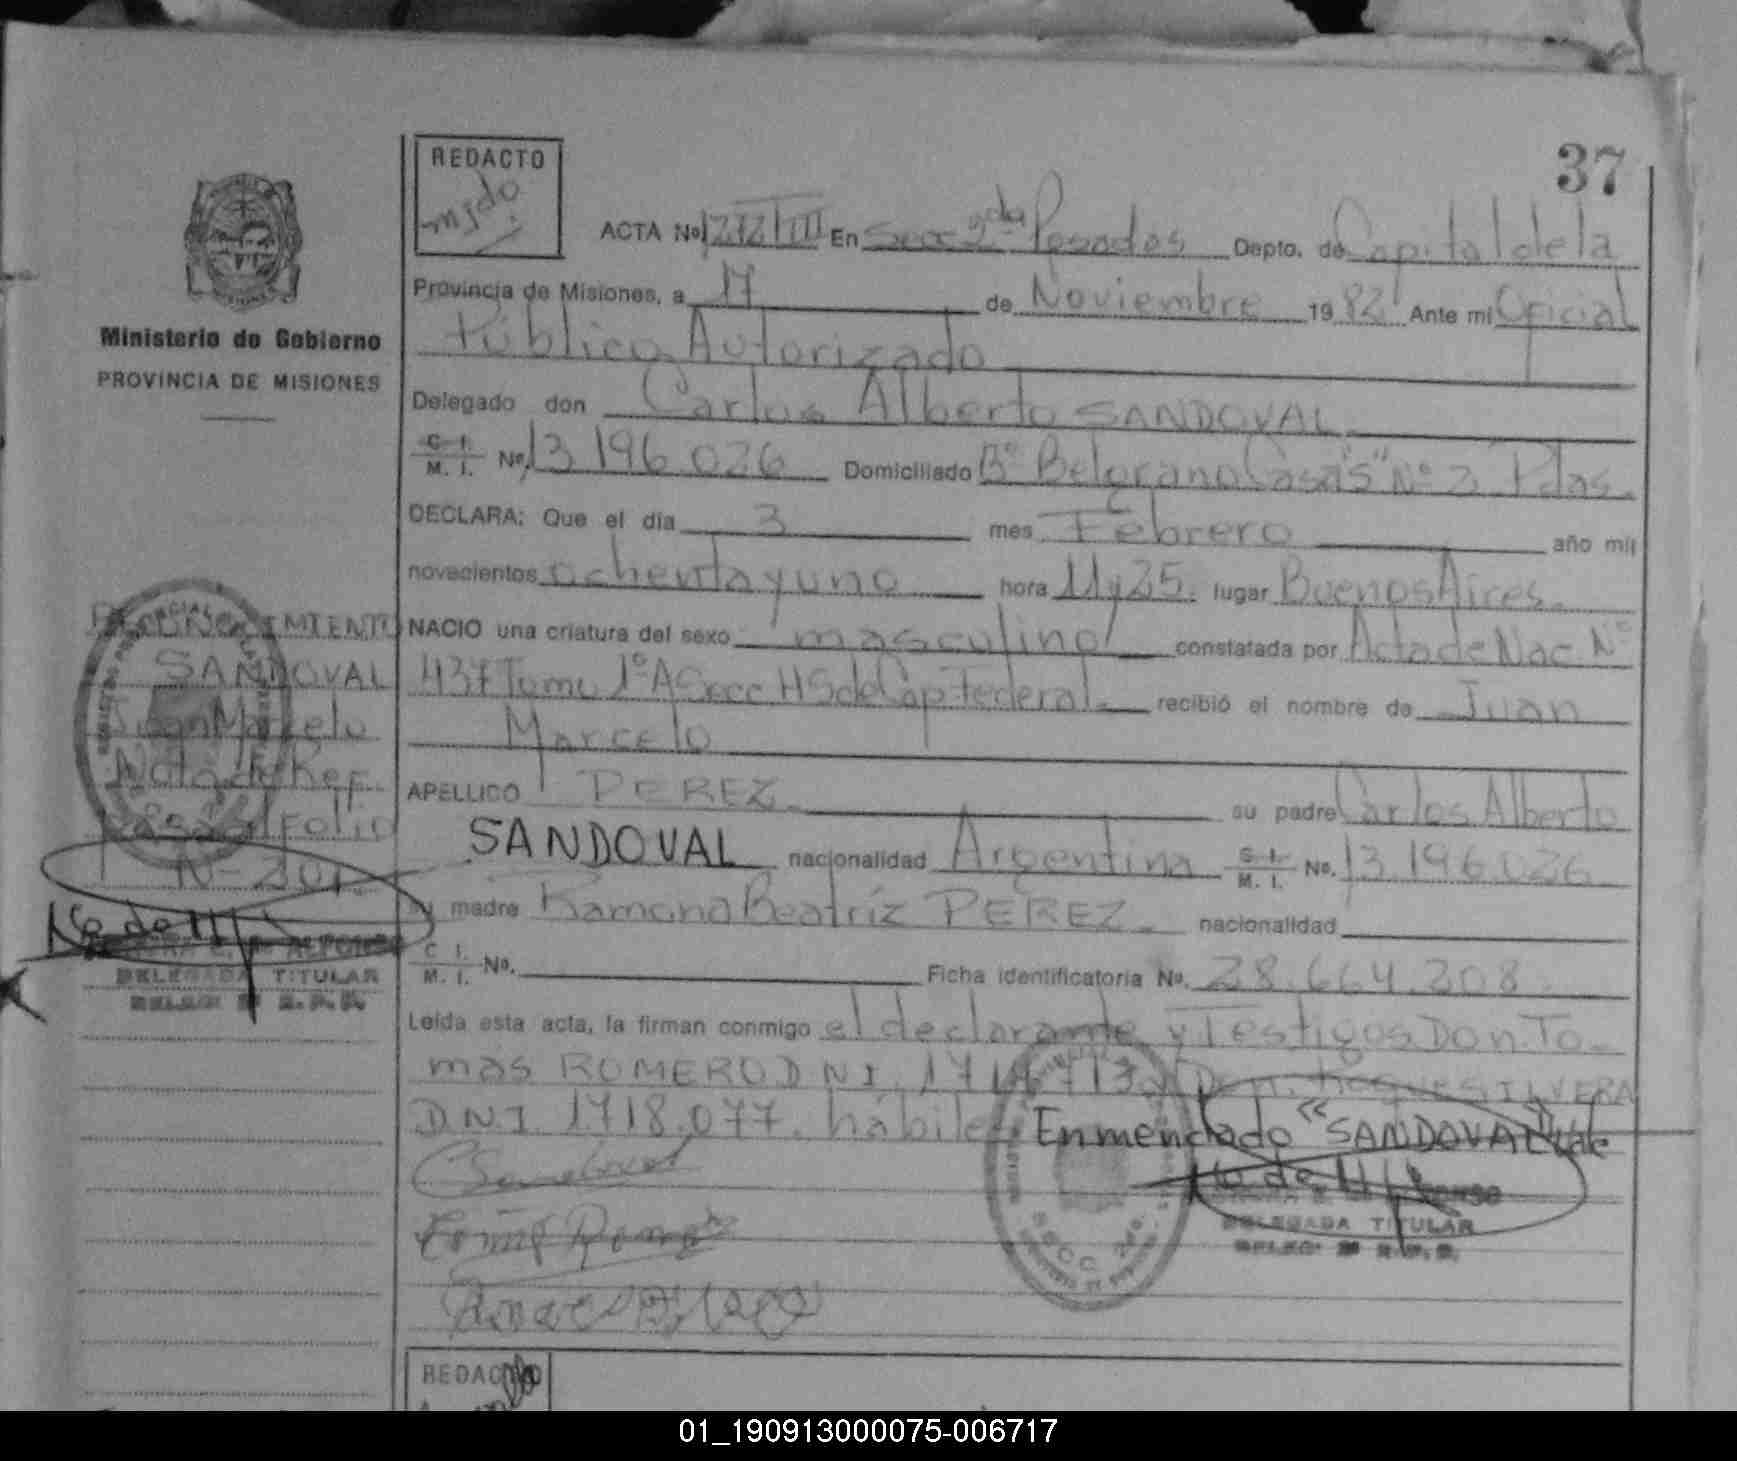 37
REDACTO
ACTA Nº 1212/TIII En Secc 2da Posadas Depto. de Capital de la
Provincia de Misiones, a 17 de Noviembre 1982 Ante mi Oficial
Público Autorizado
Ministerio de Gobierno
PROVINCIA DE MISIONES
Delegado don Carlos Alberto SANDOVAL
C. I. M. I. Nº 13.196.026 Domiciliado Bº Belgrano Casa "S" Nº 2 Pdas.
DECLARA: Que el día 3 mes Febrero año mil
novecientos ochenta y uno hora 11 y 25. lugar Buenos Aires.
NACIO una criatura del sexo masculino constatada por Acta de Nac. Nº
437 Tomo 1º A Secc HS de Cap. Federal. recibió el nombre de Juan
Marcelo
APELLIDO PEREZ su padre Carlos Alberto
SANDOVAL nacionalidad Argentina C. I. M. I. No. 13.196.026
su madre Ramona Beatríz PEREZ nacionalidad
C. I. M. I. No. Ficha identificatoria Nº. 28.664.208
Leída esta acta, la firman conmigo el declarante y Testigos Don To-
más ROMERO D N I. y SILVERA
D.N.I. 1718.077. hábiles
Enmendado "SANDOVAL" Vale
DELEGADA TITULAR
SANDOVAL
Juan Marcelo
Nota de Ref.
Pasa al Folio
Nº 201
DELEGADA TITULAR
REDACTO
01_190913000075-006717